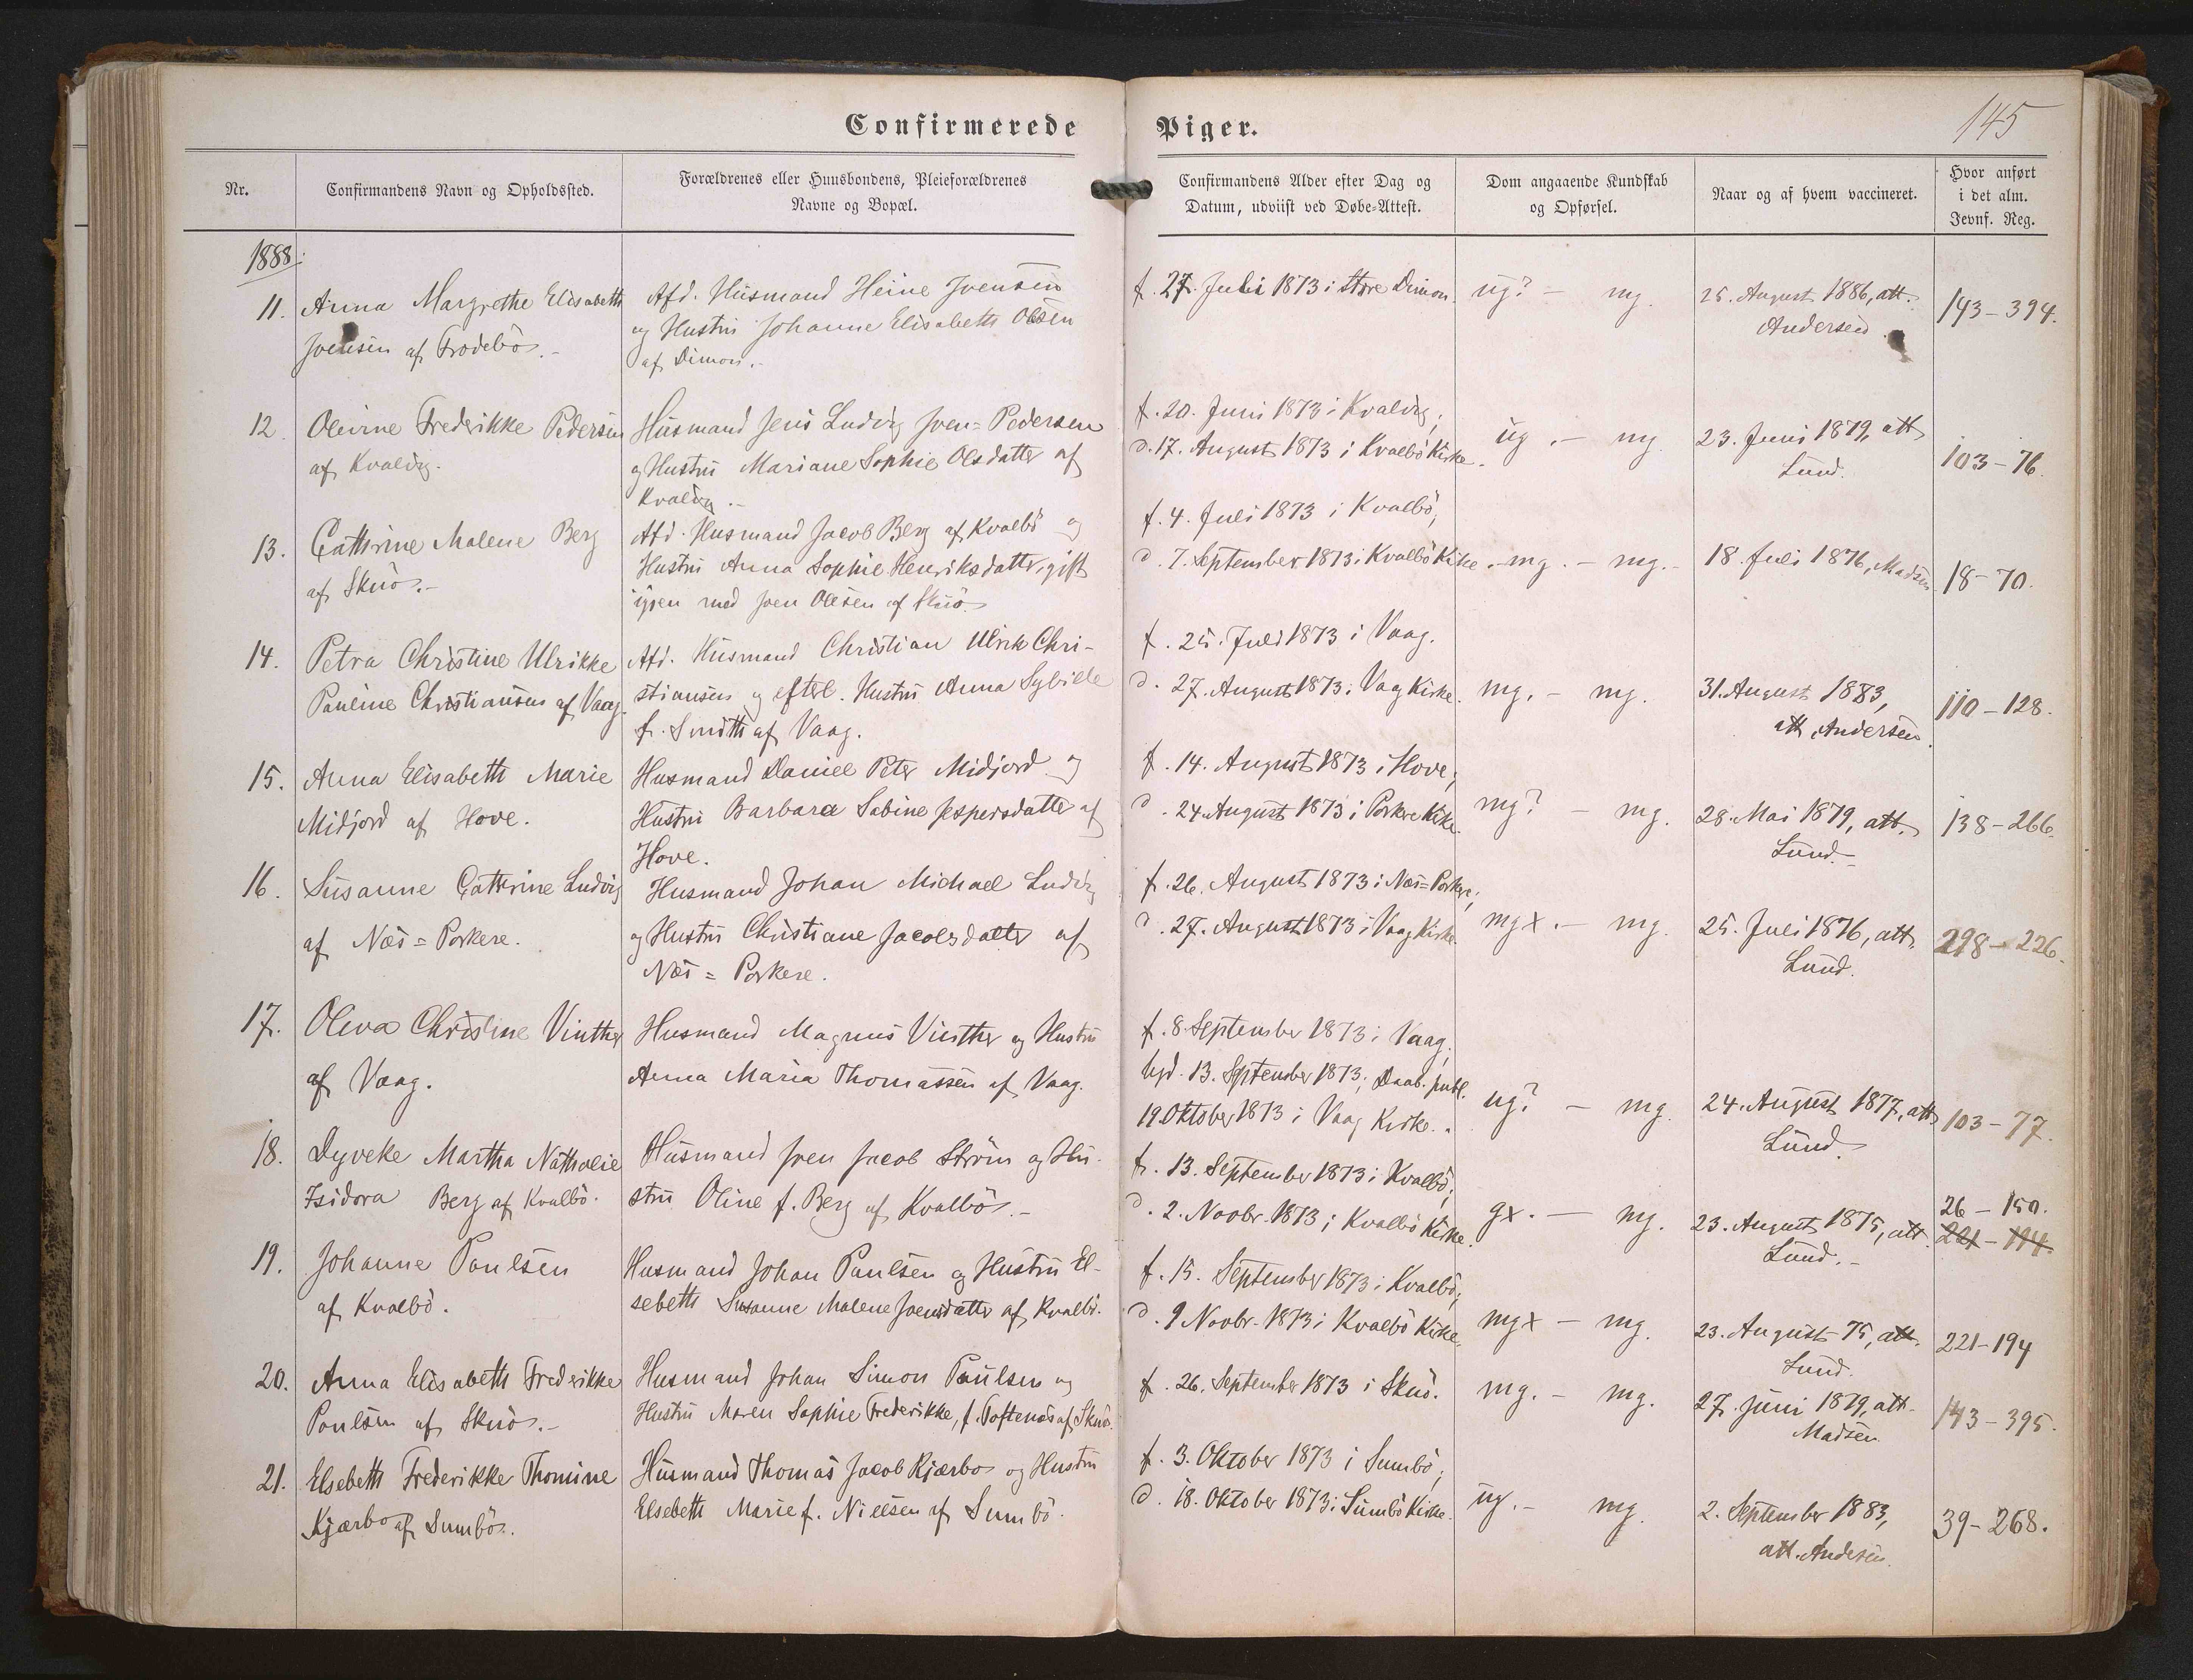 Confirmerede Piger.
145
Nr.
Confirmandens Navn og Opholdssted.
Forældrenes eller Huusbondens, Pleieforældrenes
Navne og Bopæl.
Confirmandens Alder efter Dag og
Datum, udviist ved Døbe-Attest.
Dom angaaende Kundskab
og Opførsel.
Naar og af hvem vaccineret.
Hvor anført
i det alm.
Jevnf. Reg.
1888.
11.
Anna Margrethe Elisabeth
Joensen af Frodebö.-
Afd. Husmand Heine Joensen
og Hustru Johanne Elisabeth Olsen
af Dimon.-
f. 27. Juli 1873 i Store Dimon.
ug? - mg.
25. August 1886, att.
Andersen.
143-394.
12.
Olevine Frederikke Pedersen
af Kvalvig.
Husmand Jens Ludvig Joen=Pedersen
og Hustru Mariane Sophie Olsdatter af
Kvalvig.-
f. 20. Juni 1873 i Kvalvig;
d. 17. August 1873 i Kvalbö Kirke.
ug.- mg
23. Juni 1879, att
Lund.
103-76.
13.
Cathrine Malene Berg
af Skuö.-
Afd. Husmand Jacob Berg af Kvalbö og
Hustru Anna Sophie Henriksdatter, gift
igjen med Joen Olesen af Skuö.
f. 4. Juli 1873 i Kvalbö;
d. 7. September 1873 i Kvalbö Kirke.
mg.- mg.-
18. Juli 1876, Madsen.
18-70.
14.
Petra Christine Ulrikke
Pauline Christiansen af Vaag.
Afd. Husmand Christian Ulrik Chri-
stiansen og efterl. Hustru Anna Sybille
f. Smith af Vaag.
f. 25. Juli 1873 i Vaag.
d. 27. August 1873 i Vaag Kirke.
mg.- mg.
31. August 1883,
att. Andersen.
110-128.
15.
Anna Elisabeth Marie
Midjord af Hove.
Husmand Daniel Peter Midjord og
Hustru Barbara Sabine Jespersdatter af
Hove.
f. 14. August 1873 i Hove;
d. 24. August 1873 i Porkere Kirke.
mg? - mg.
28. Mai 1879, att.
Lund.-
138-266.
16.
Susanne Cathrine Ludvig
af Næs=Porkere.
Husmand Johan Michael Ludvig
og Hustru Christiane Jacobsdatter af
Næs=Porkere.
f. 26. August 1873 i Næs=Porkere;
d. 27. August 1873 i Vaag Kirke.
mgx.- mg.
25. Juli 1876, att.
Lund.
298-226.
17.
Oliva Christine Vinther
af Vaag.
Husmand Magnus Vinther og Hustru
Anna Maria Thomassen af Vaag.
f. 8. September 1873 i Vaag;
hjd. 13. September 1873; Daab. publ.
19 Oktober 1873 i Vaag Kirke.
ug? - mg.
24. August 1877, att
Lund.
103-77.
18.
Dyveke Martha Nathalie
Isidora Berg af Kvalbö.
Husmand Joen Jacob Ström og Hu-
stru Oline f. Berg af Kvalbö.-
f. 13. September 1873 i Kvalbö;
d. 2. Novbr. 1873 i Kvalbö Kirke.
gx.- mg.
23. August 1875, att.
Lund.-
26-150.
221-194.
19.
Johanne Poulsen
af Kvalbö.
Husmand Johan Paulsen og Hustru El-
sebeth Susanne Malene Joensdatter af Kvalbö.
f. 15. September 1873 i Kvalbö;
d. 9 Novbr. 1873 i Kvalbö Kirke.
mgx - mg.
23. August 75, att.
Lund.
221-194
20.
Anna Elisabeth Frederikke
Poulsen af Skuö.-
Husmand Johan Simon Poulsen og
Hustru Maren Sophie Frederikke, f. Toftenæs af Skuö.
f. 26. September 1873 i Skuö.
mg.- mg.
27. Juni 1879, att.
Madsen
143-395.
21.
Elsebeth Frederikke Thomine
Kjærbo af Sumbö.
Husmand Thomas Jacob Kjærbo og Hustru
Elsebeth Marie f. Nielsen af Sumbö.
f. 3. Oktober 1873 i Sumbö;
d. 18. Oktober 1873 i Sumbö Kirke.
ug.- mg.
2. September 1883,
att. Andersen.
39-268.